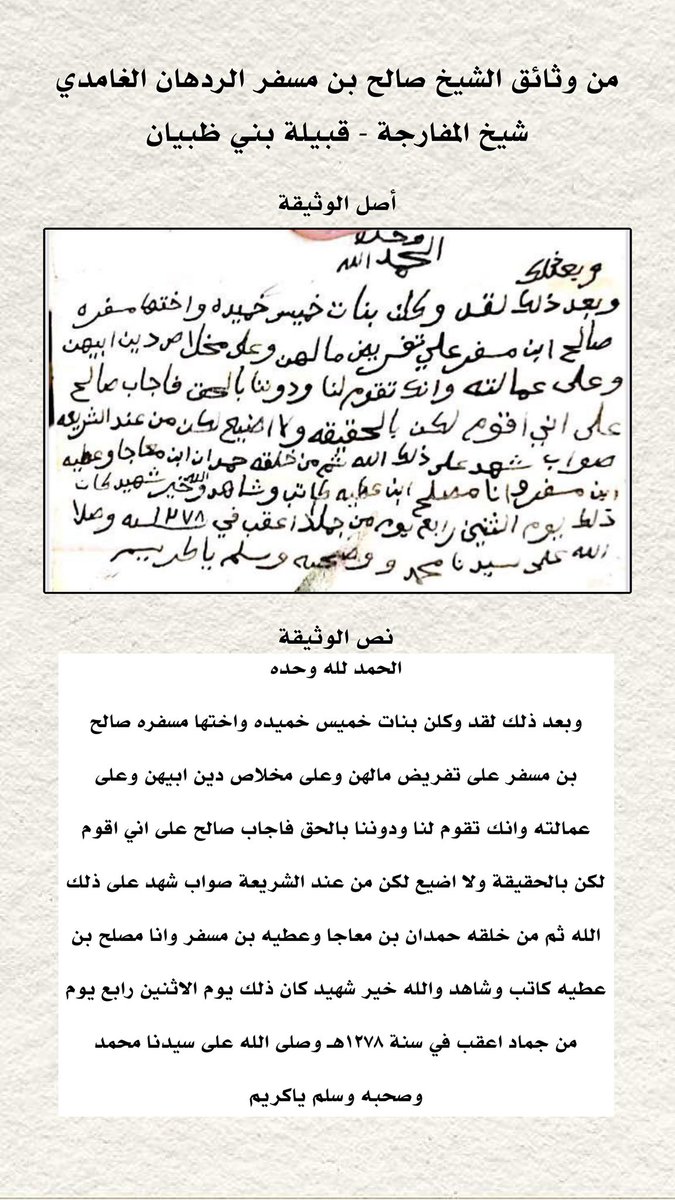 من وثائق الشيخ صالح بن مسفر الردهان الغامدي
شيخ المفارجة - قبيلة بني ظبيان
أصل الوثيقة
وحده
الحمد الله
وبعد ذلك
وبعد ذلك لقد وكلن بنات خميس خميده واختها مسفره
صالح ابن مسفر علي تفريض مالهن وعلى مخلاص دين ابيهن
وعلى عمالته وانك تقوم لنا ودوننا بالحق فاجاب صالح
على اني اقوم لكن بالحقيقه ولا اضيع لكن من عند الشريعه
صواب شهد على ذلك الله ثم من خلقه حمدان ابن معاجا وعطيه
ابن مسفر وانا مصلح ابن عطيه كاتب وشاهد والله خير شهيد كان
ذلك يوم الثنين رابع يوم من جماد اعقب في ١٢٧٨ سنه وصلا
الله على سيدنا محمد و وصحبه وسلم ياكريم
نص الوثيقة
الحمد لله وحده
وبعد ذلك لقد وكلن بنات خميس خميده واختها مسفره صالح
بن مسفر على تفريض مالهن وعلى مخلاص دين ابيهن وعلى
عمالته وانك تقوم لنا ودوننا بالحق فاجاب صالح على اني اقوم
لكن بالحقيقة ولا اضيع لكن من عند الشريعة صواب شهد على ذلك
الله ثم من خلقه حمدان بن معاجا وعطيه بن مسفر وانا مصلح بن
عطيه كاتب وشاهد والله خير شهيد كان ذلك يوم الاثنين رابع يوم
من جماد اعقب في سنة ١٢٧٨هـ وصلى الله على سيدنا محمد
وصحبه وسلم ياكريم